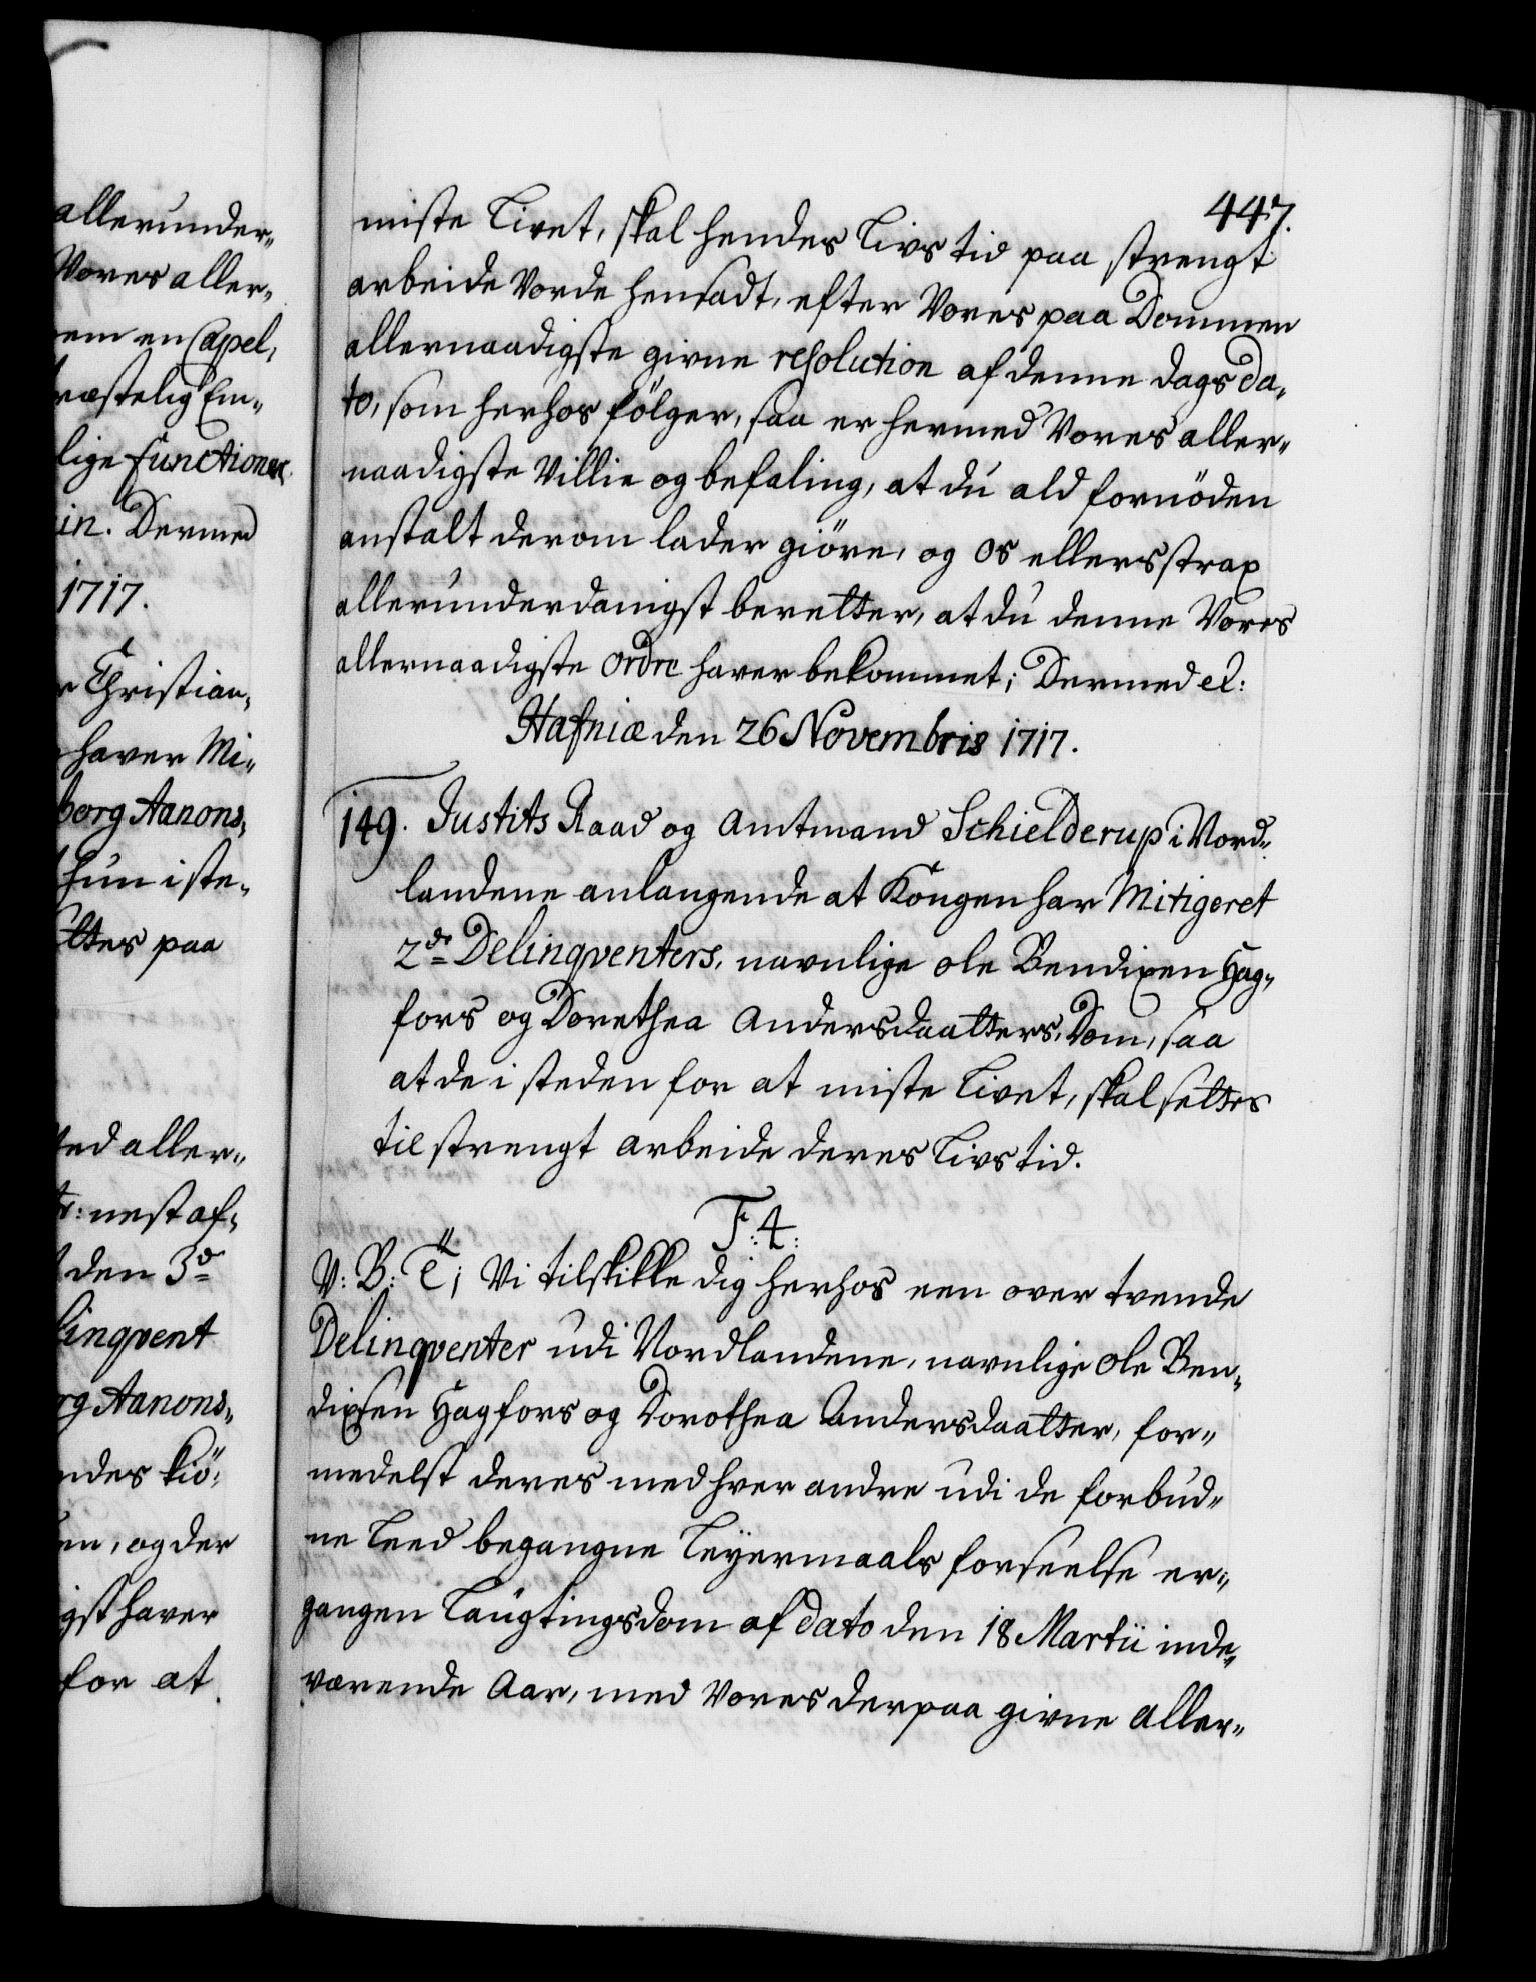 allerunder„
Vores aller„
em en Capel„
ræstelig Em„
lige functioner
in. Dermed
1717.
r Christian„
haver Mi„
borg Aanons„
hun i ste„
ettes paa
ed aller„
r: nest af„
den 3d
linqvent
rg Aanons„
ndes kiö„
en, og der
gst haver
for at
447.
miste Livet, skal hendes Livs tid paa strengt
arbeide Vorde hensadt, efter Vores paa Dommen
allernaadigste givne resolution af denne dags da„
to, som herhos fölger, saa er hermed Vores aller„
naadigste Villie og befaling, at du ald fornöden
anstalt derom lader giöre, og os ellers strax
allerunderdanigst beretter, at du denne Vores
allernaadigste ordre haver bekommet; Dermed etc:
Hafniæ den 26 Novembris 1717.
149. Justits Raad og Amtmand Schielderup i Nord„
landene anlangende at Kongen har Mitigeret
2de Delinqventers, navnlige Ole Bendixen Hag„
fors og Dorethea Andersdaatters, Dom, saa
at de i steden for at miste Livet, skal settes
til strengt arbeide deres Livs tid.
F: 4:
V: B: C; Vi tilskikke dig herhos een over tvende
Delinqventer udi Nordlandene, navnlige Ole Ben„
dixen Hagfors og Dorothea Andersdaatter, for„
medelst deres med hver andre udi de forbud„
ne Leed begangne Leyermaals forseelse er„
gangen Laugtings dom af dato den 18 Martii inde„
værende Aar, med Vores derpaa givne aller„